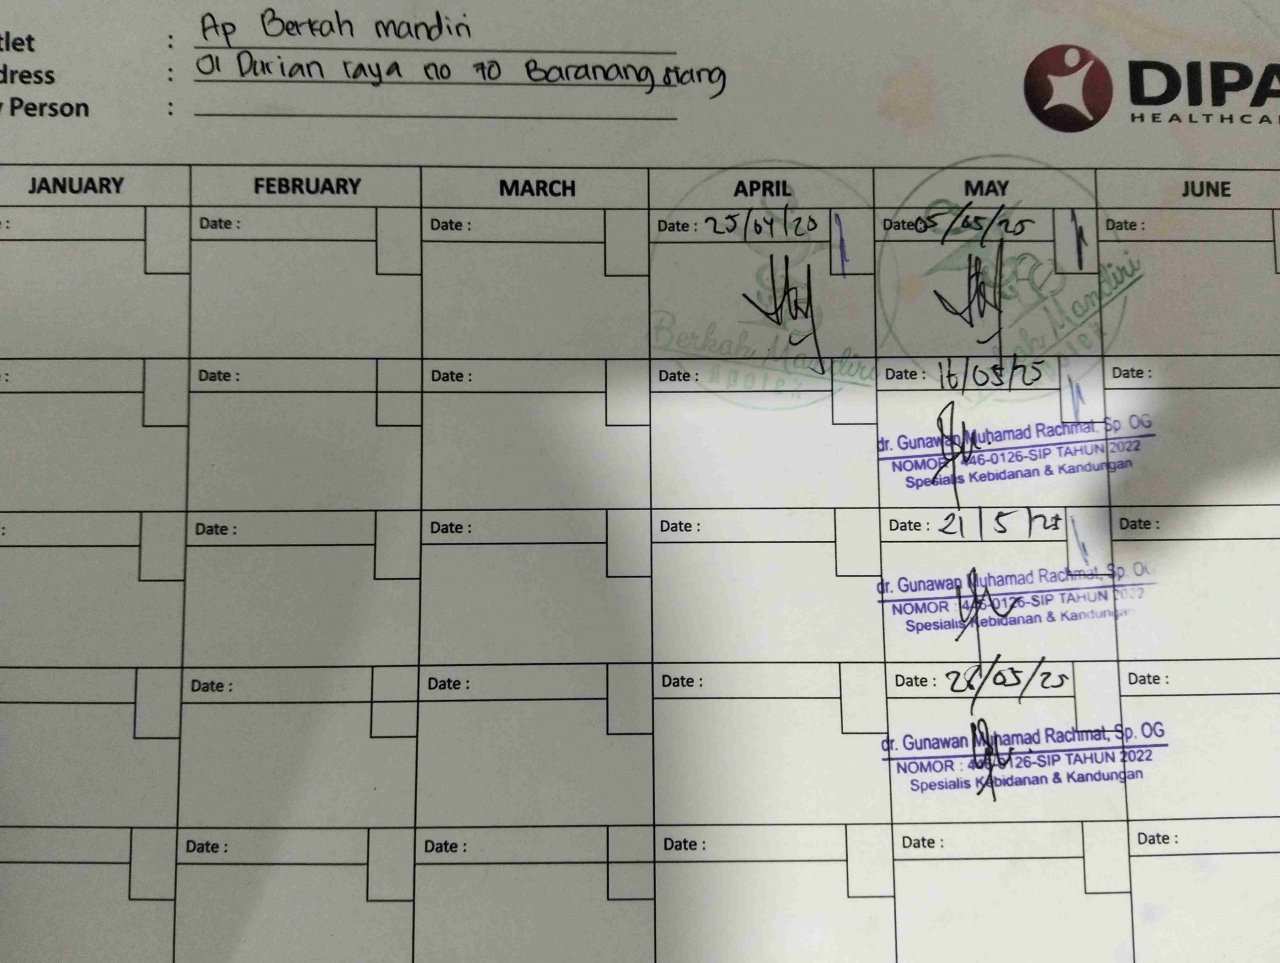 tlet : Ap Berkah mandiri
dress : Jl Durian raya no 70 Baranang siang
Person :
DIPA
HEALTHCA
JANUARY FEBRUARY MARCH APRIL MAY JUNE
: Date : Date : Date : 25/04/20 Date 05/05/25 Date :
Berkah Mandiri
Apotek
Mandiri
: Date : Date : Date : Date : 16/05/25 Date :
dr. Gunawan Muhamad Rachmat, Sp. OG
NOMOR : 446-0126-SIP TAHUN 2022
Spesialis Kebidanan & Kandungan
: Date : Date : Date : Date : 21/5/25 Date :
dr. Gunawan Muhamad Rachmat, Sp. OG
NOMOR : 446-0126-SIP TAHUN 2022
Spesialis Kebidanan & Kandungan
Date : Date : Date : Date : 28/05/25 Date :
dr. Gunawan Muhamad Rachmat, Sp. OG
NOMOR : 446-0126-SIP TAHUN 2022
Spesialis Kebidanan & Kandungan
Date : Date : Date : Date : Date :